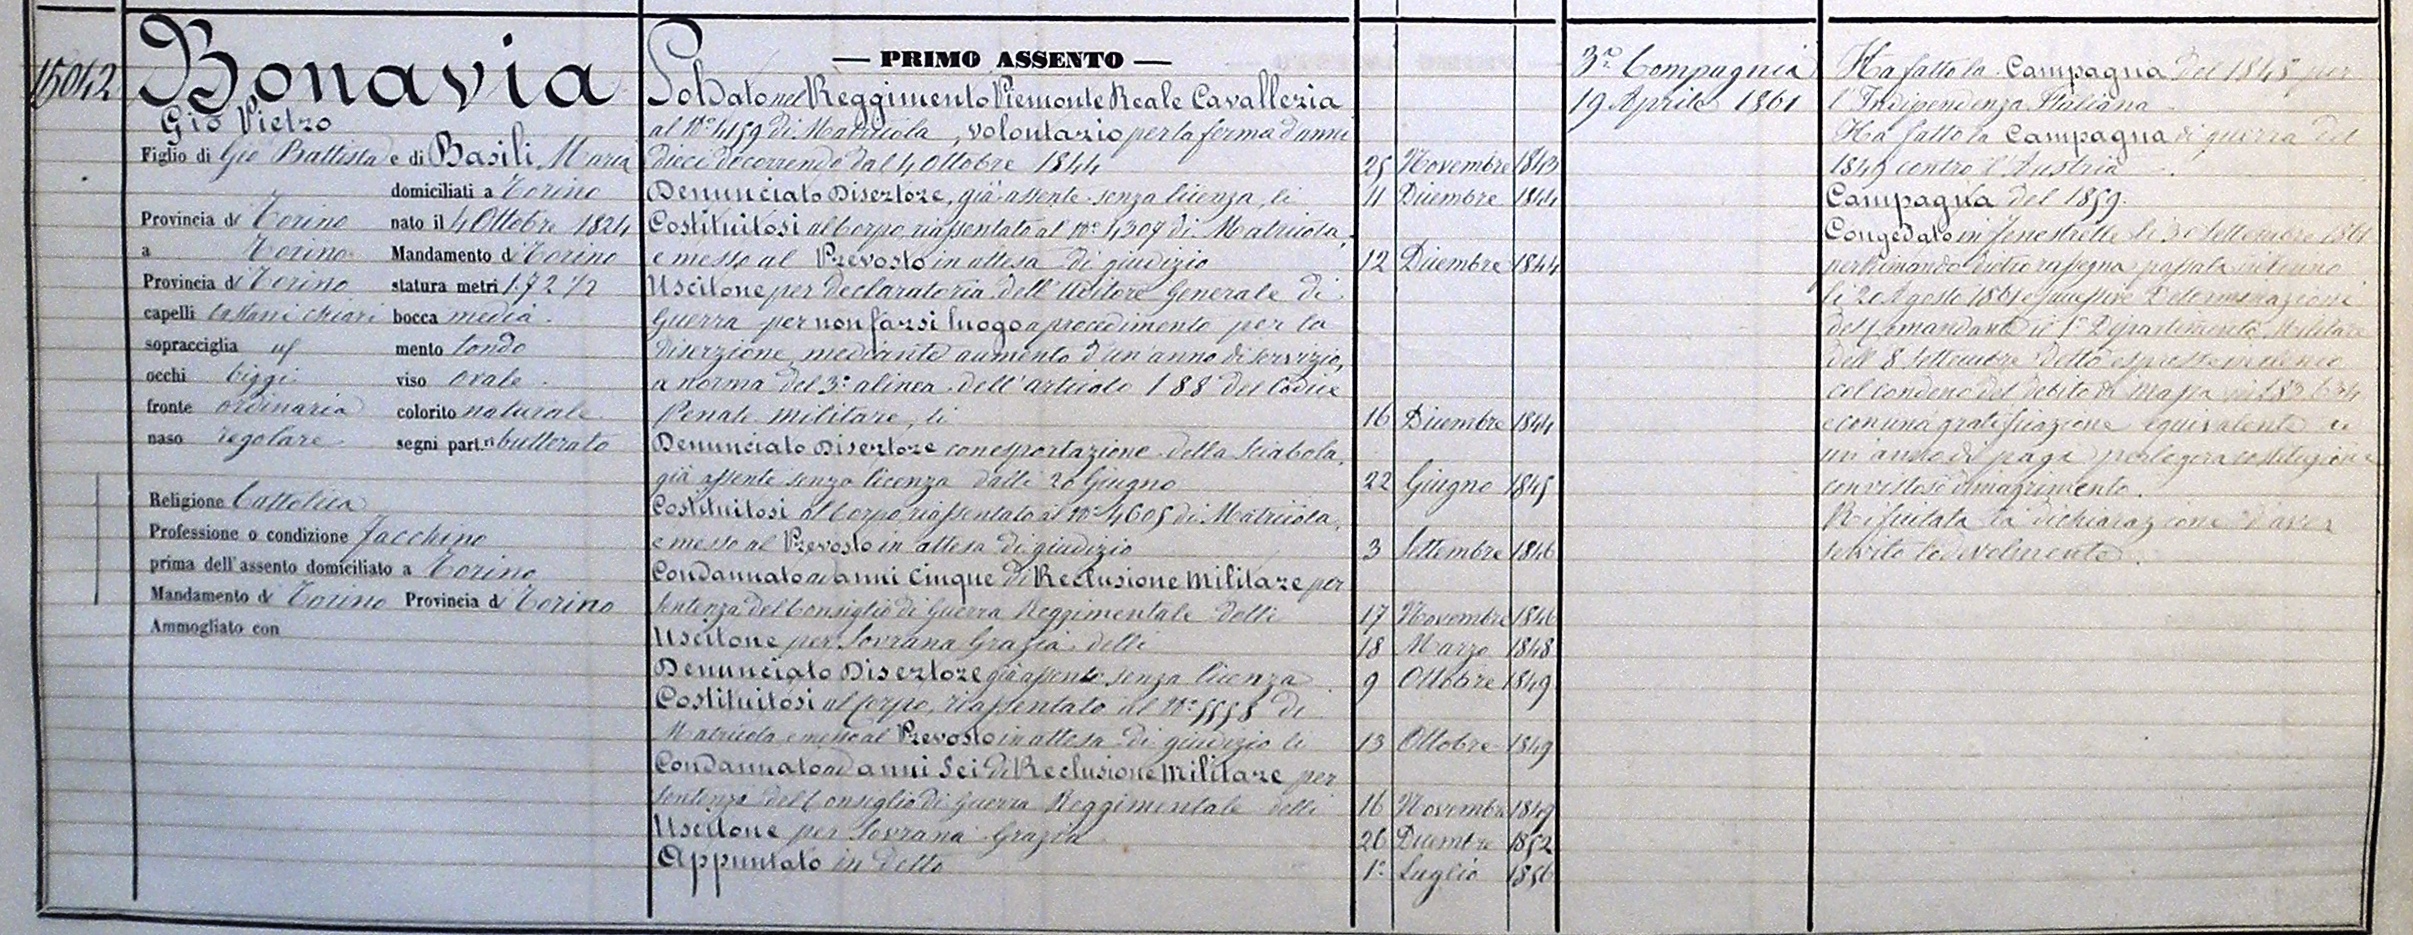 15042
Bonavia
Gio Pietro
Figlio di Gio Battista e di Basili Maria
domiciliati a Torino
Provincia di Torino nato il 4 Ottobre 1824
a Torino Mandamento di Torino
Provincia di Torino statura metri 1.72 1/2
capelli castani chiari bocca media
sopracciglia us mento tondo
occhi biggi viso ovale
fronte ordinaria colorito naturale
naso regolare segni part.ri butterato
Religione Cattolica
Professione o condizione Facchino
prima dell'assento domiciliato a Torino
Mandamento di Torino Provincia di Torino
Ammogliato con
— PRIMO ASSENTO —
Soldato nel Reggimento Piemonte Reale Cavalleria
al N° 4159 di Matricola, volontario per la ferma d'anni
dieci decorrendo dal 4 Ottobre 1844 25 Novembre 1843
Denunciato Disertore, già assente senza licenza, li 11 Dicembre 1844
Costituitosi al Corpo, riassentato al N° 4309 di Matricola,
e messo al Prevosto in attesa di giudizio 12 Dicembre 1844
Uscitone per declaratoria dell'Uditore Generale di
Guerra per non farsi luogo a procedimento per la
diserzione, mediante aumento d'un anno di servizio,
a norma del 3° alinea dell'articolo 188 del Codice
Penale militare, li 16 Dicembre 1844
Denunciato Disertore con esportazione della sciabola,
già assente senza licenza dalli 20 Giugno 22 Giugno 1845
Costituitosi al Corpo, riassentato al N° 4605 di Matricola,
e messo al Prevosto in attesa di giudizio 3 Settembre 1846
Condannato ad anni Cinque di Reclusione Militare per
sentenza del Consiglio di Guerra Reggimentale delli 17 Novembre 1846
Uscitone per Sovrana Grazia delli 18 Marzo 1848
Denunciato Disertore già assente senza licenza 9 Ottobre 1849
Costituitosi al Corpo, riassentato al N° 5558 di
Matricola e messo al Prevosto in attesa di giudizio li 13 Ottobre 1849
Condannato ad anni Sei di Reclusione Militare per
sentenza del Consiglio di Guerra Reggimentale delli 16 Novembre 1849
Uscitone per Sovrana Grazia 26 Dicembre 1852
Appuntato in detto 1° Luglio 1856
3a Compagnia
19 Aprile 1861
Ha fatto la Campagna del 1848 per
l'Indipendenza Italiana
Ha fatto la Campagna di guerra del
1849 contro l'Austria
Campagna del 1859.
Congedato in Fenestrelle li 30 Settembre 1861
per rimando dietro rassegna passata in Torino
li 20 Agosto 1861 e giusta Determinazioni
del Comandante il 1° Dipartimento Militare
dell'8 Settembre detto
col condono del debito di massa
e con una gratificazione equivalente a
un anno di paga per
con vistoso dimagrimento.
Rifiutata la dichiarazione d'aver
servito lodevolmente.